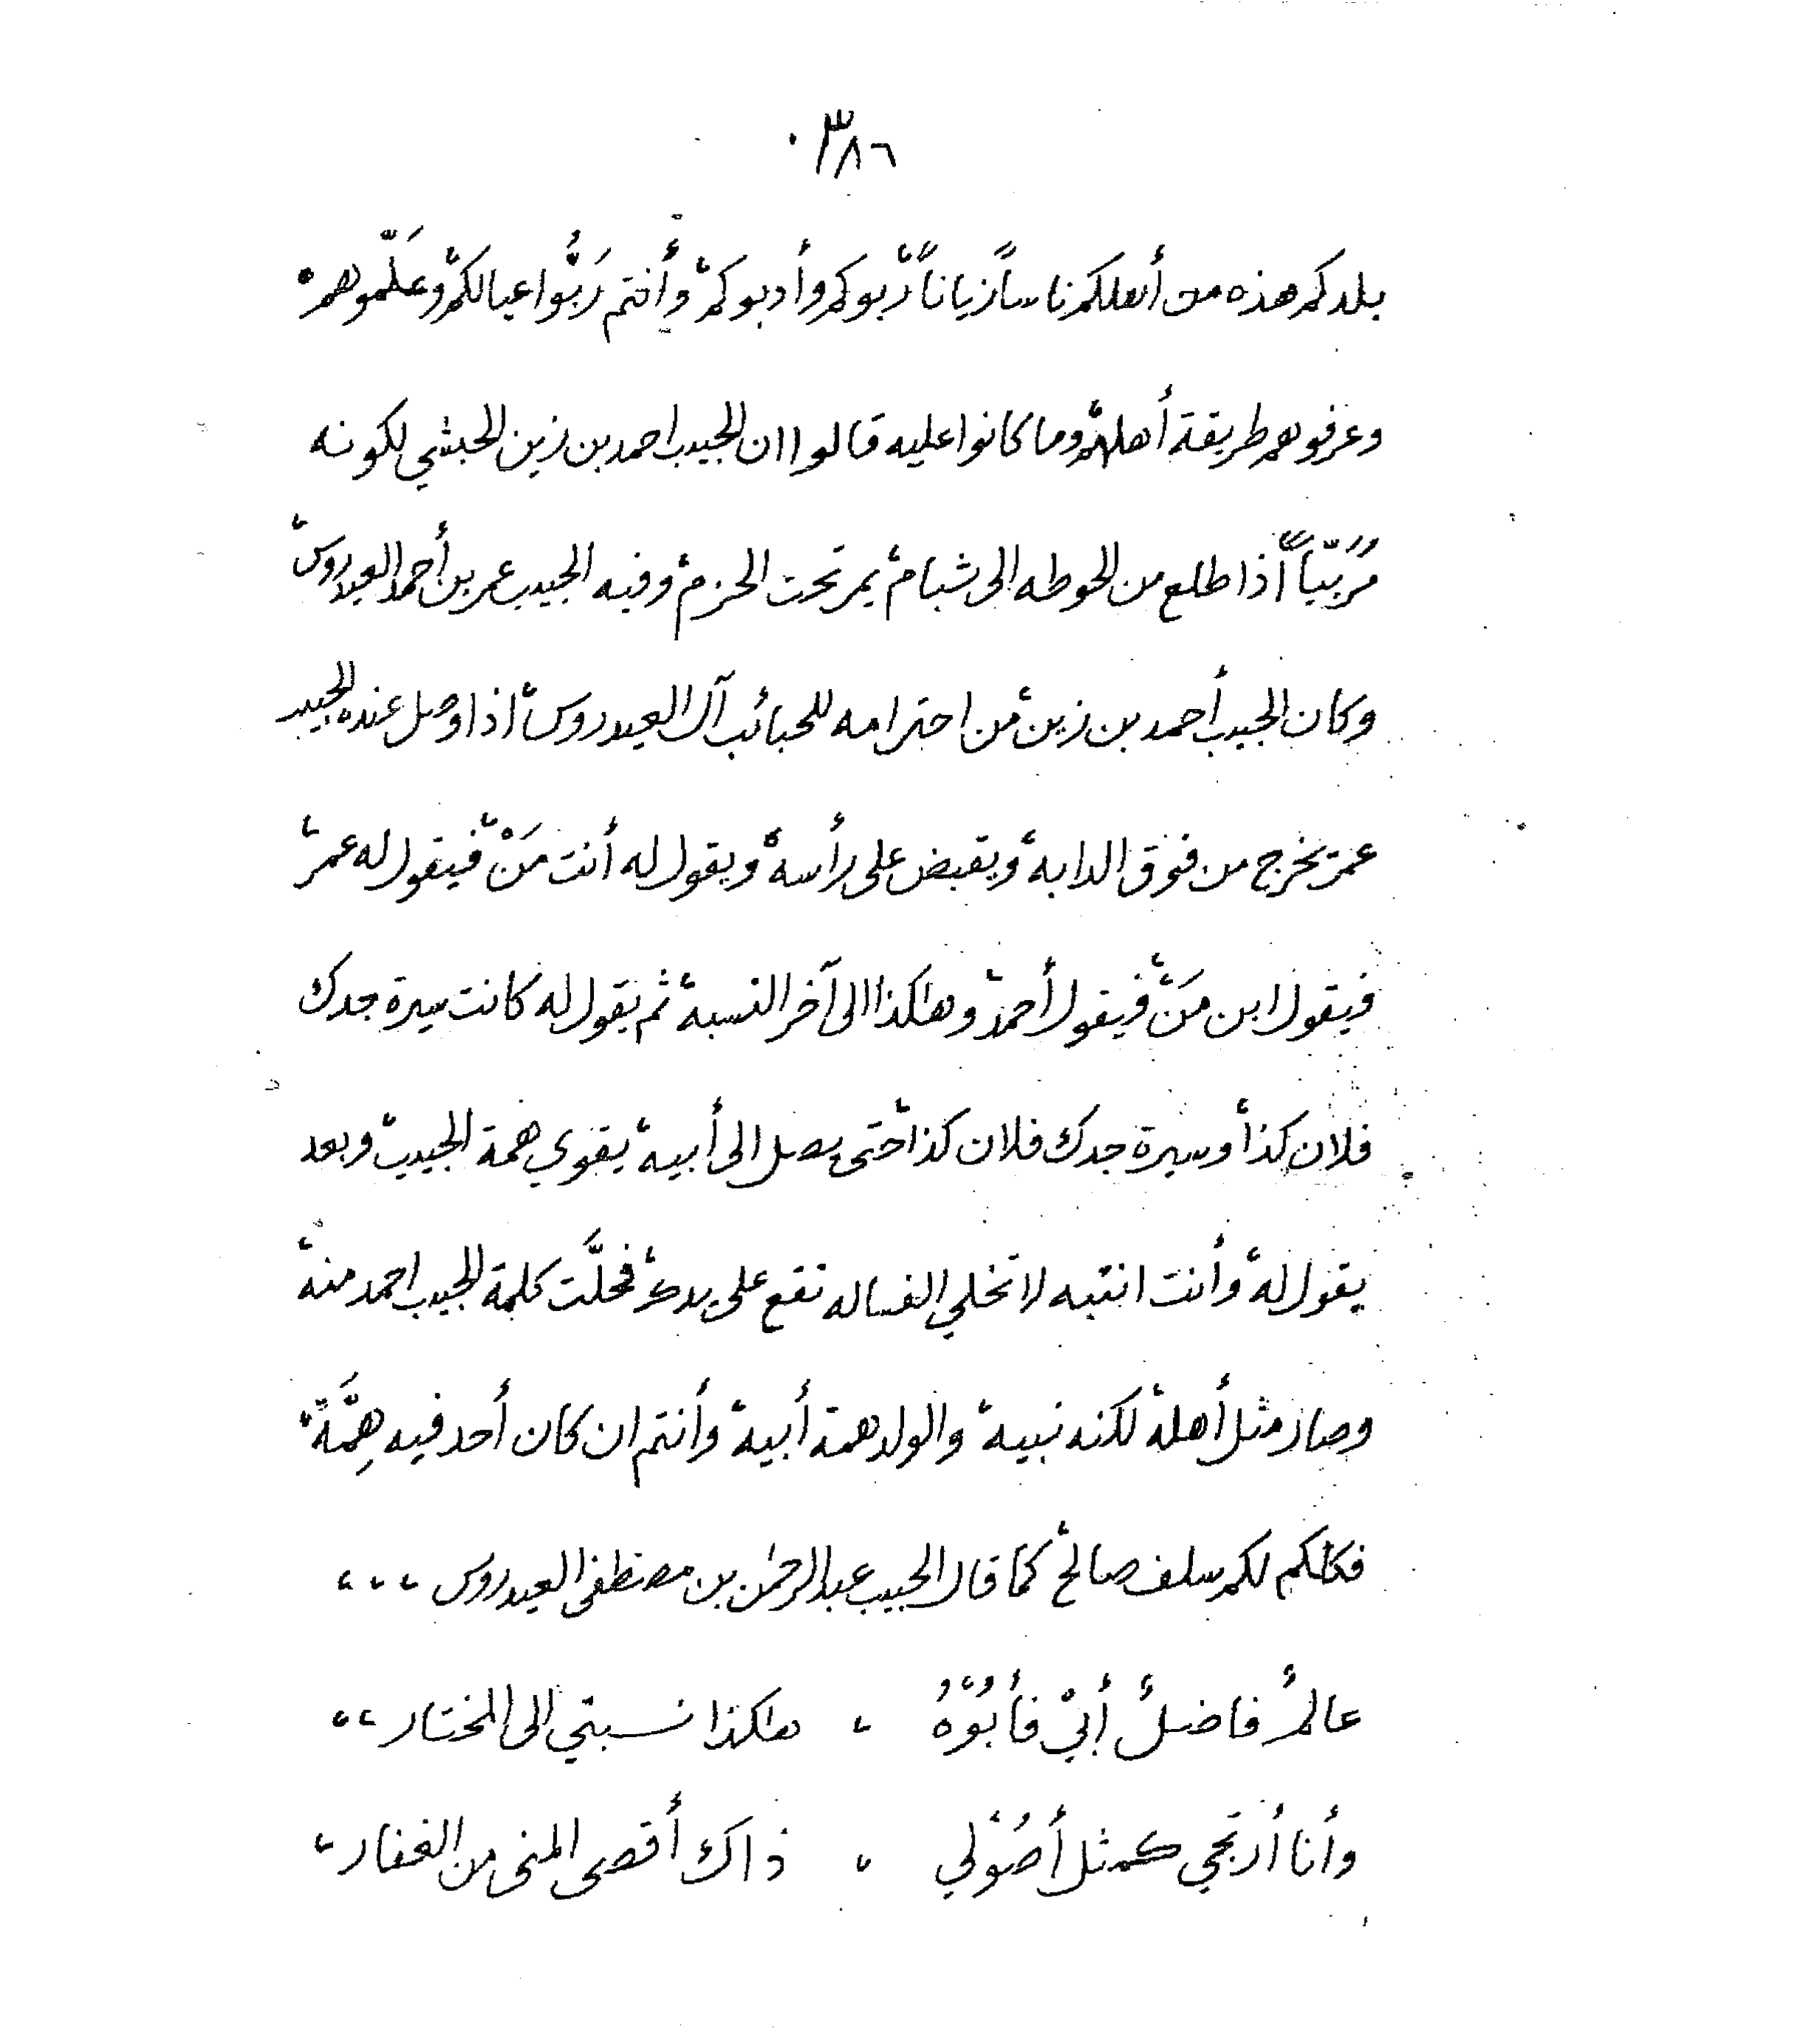 ٣٨٦
بلدكم هذه من أهلكم ناساً زياناً، ربوكم وأدبوكم، وأنتم رَبُّوا عيالكم، وعَلّموهم،
وعرفوهم طريقة أهلهم، وما كانوا عليه قالوا ان الحبيب احمد بن زين الحبشي لكونه
مُرَبّياً، اذا طلع من الحوطه الى شبام، يمر تحت الحزم، وفيه الحبيب عمر بن أحمد العيدروس،
وكان الحبيب أحمد بن زين، من احترامه للحبائب آل العيدروس، اذا وصل عنده الحبيب
عمر، يخرج من فوق الدابه، ويقبض على رأسه، ويقول له أنت مَنْ، فيقول له عمر،
فيقول ابن مَنْ، فيقول أحمد، وهٰكذا الى آخر النسبة، ثم يقول له كانت سيرة جدك
فلان كذا، وسيرة جدك فلان كذا، حتى يصل الى أبيه، يقوي همة الحبيب، وبعد
يقول له، وأنت انتبه لا تخلي الفساله تقع على يدك، فحلَّت كلمة الحبيب احمد منه،
وصار مثل أهله، لكنه نبيه، والولد همة أبيه، وأنتم ان كان أحد فيه هِمَّة،
فكلكم لكم سلف صالح، كما قال الحبيب عبدالرحمٰن بن مصطفى العيدروس ،،،
عالمٌ فاضلٌ أبيْ فأبُوْهُ ، هٰكذا نسبتي الى المختار ،،
وأنا أرتجي كمثل أصُوْلي ، ذاك أقصى المنى من الغفار ،